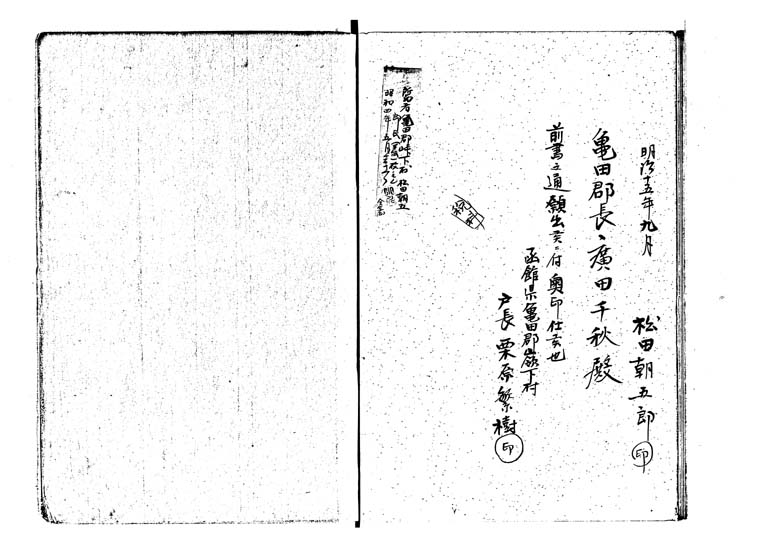 明治十五年九月
松田朝五郎 印
亀田郡長、廣田千秋殿
前書之通願出候ニ付奥印仕候也
函館県亀田郡峠下村
戸長 栗原繁樹 印
亀田郡峠下村 松田朝五
昭和四年五月